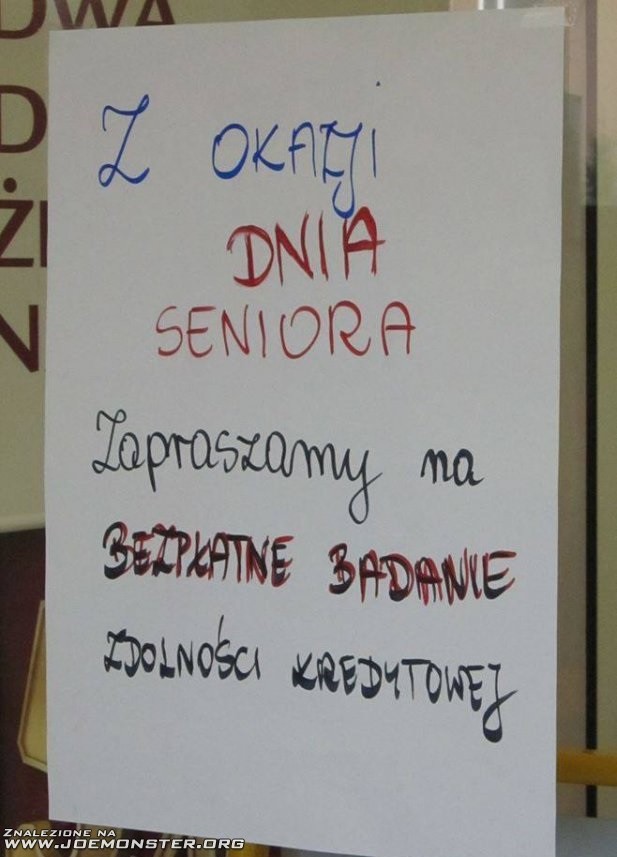 DWA
Z OKAZJI
DNIA
SENIORA
Zapraszamy na
BEZPŁATNE BADANIE
ZDOLNOŚCI KREDYTOWEJ
ZNALEZIONE NA
WWW.JOEMONSTER.ORG